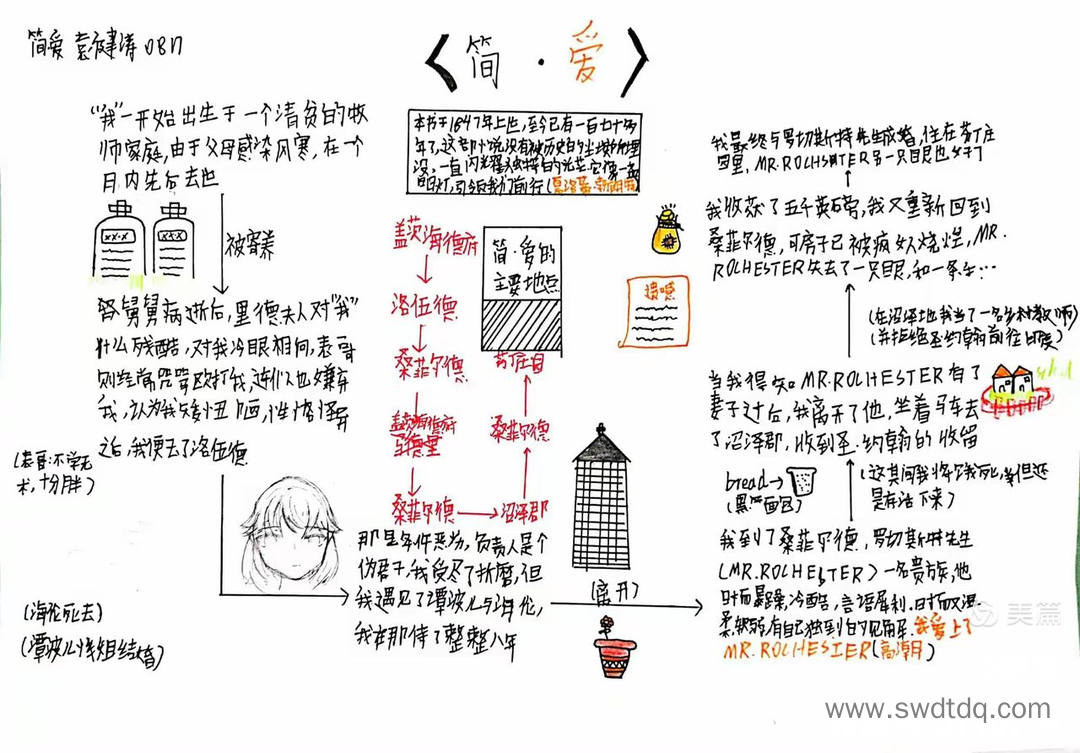 简爱 袁 健涛 0817
《简·爱》
"我"一开始出生于一个清贫的牧
师家庭,由于父母感染风寒,在一个
月内先后去世
xx·x
xx·x
被寄养
舅舅病逝后,里德夫人对"我"
什么残酷,对我冷眼相向,表哥
则经常咒骂殴打我,连仆人也嫌弃
我,认为我矮小丑陋,性情怪异
之后,我便去了洛伍德
(表哥:不学无
术,十分胖)
(海伦死去)
(谭波儿小姐结婚)
本书于1847年上世,至今已有一百七十多
年了,这部小说没有被历史的尘埃所埋
没,一直闪光耀独特的光芒,它像一盏
明灯,引领我们前行(夏洛蒂·勃朗特)
盖茨海德府
洛伍德
桑菲尔德
盖茨海德府
桑菲尔德
沼泽郡
桑菲尔德
芬庄园
简·爱的
主要地点
遗嘱
那里条件恶劣,负责人是个
伪君子,我受尽了折磨,但
我遇见了谭波儿与海伦,
我在那待了整整八年
(离开)
我到了桑菲尔德,罗切斯特先生
(MR.ROLHESTER)一名贵族,他
时而暴躁,冷酷,言语犀利,时而又温
柔,有自己独到的见解,我爱上了
MR.ROLHESTER(高潮)
bread→
(黑面包)
(这其间我将饿死,但还
是存活下来)
当我得知MR.ROLHESTER有了
妻子过后,我离开了他,坐着马车去
了沼泽郡,收到圣·约翰的收留
(在沼泽地我当了一名乡村教师)
(并拒绝圣约翰前往印度)
我收获了五千英磅,我又重新回到
桑菲尔德,可房子已被疯女人烧烂,MR.
ROLHESTER失去了一只眼,和一条手…
我最终与罗切斯特先生成婚,住在芬庄
园里,MR.ROLHSHTER另一只眼也好了
美篇
www.swdtdq.com